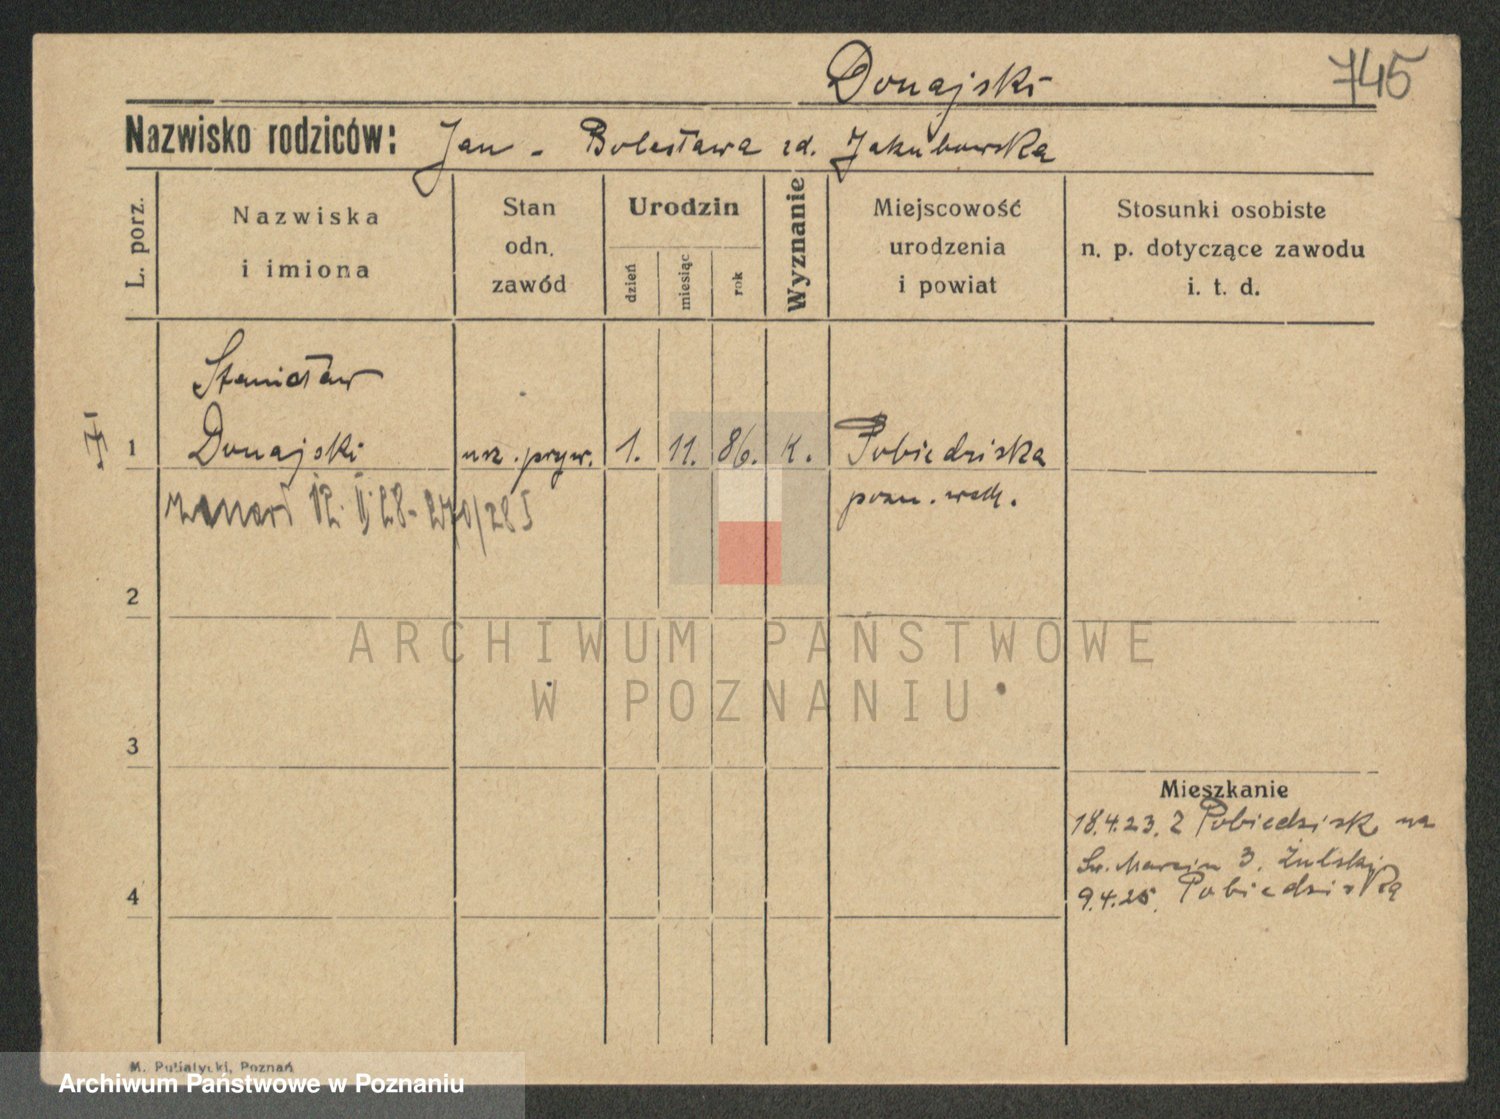 Donajski
745
Nazwisko rodziców: Jan - Bolesława zd. Jakubowska
L. porz.
Nazwiska
i imiona
Stan
odn.
zawód
Urodzin
dzień
miesiąc
rok
Wyznanie
Miejscowość
urodzenia
i powiat
Stosunki osobiste
n. p. dotyczące zawodu
i. t. d.
Stanisław
1 Donajski urz. pryw. 1. 11. 86. k. Pobiedziska
pozn. wsch.
zmarł 12. II 28 - 270/28 I
2
ARCHIWUM PAŃSTWOWE
W POZNANIU
3
Mieszkanie
18.4.23. Z Pobiedzisk na
Św. Marcin 3.
4
9.4.25. Pobiedziska
M. Putiatycki, Poznań
Archiwum Państwowe w Poznaniu